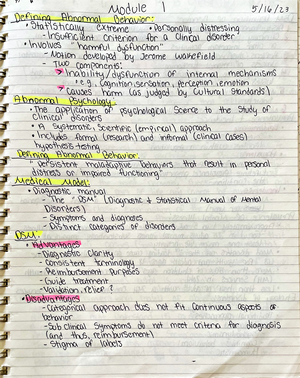 Module 1
5/16/23
Defining Abnormal Behavior:
• Statistically extreme • Personally distressing
- Insufficient criterion for a clinical disorder
• Involves "harmful dysfunction"
- Notion developed by Jerome Wakefield
- Two components:
Inability/dysfunction of internal mechanisms
i.e. cognition, sensation, perception, emotion
causes harm (as judged by cultural standards)
Abnormal Psychology:
• The application of psychological science to the study of
clinical disorders
• A systematic, scientific (empirical) approach
• Includes formal (research) and informal (clinical cases)
hypothesis-testing
Defining Abnormal Behavior:
• "Persistent maladaptive behaviors that result in personal
distress or impaired functioning"
Medical Model:
• Diagnostic manual
- The "DSM" (Diagnostic & Statistical Manual of Mental
Disorders)
- Symptoms and diagnoses
- Distinct categories of disorders
DSM:
• Advantages
- Diagnostic clarity
- Consistent terminology
- Reimbursement purposes
- Guide treatment
- Validation, relief?
• Disadvantages
- Categorical approach does not fit continuous aspects of
behavior
- Sub clinical symptoms do not meet criteria for diagnosis
(and thus, reimbursement)
- Stigma of labels